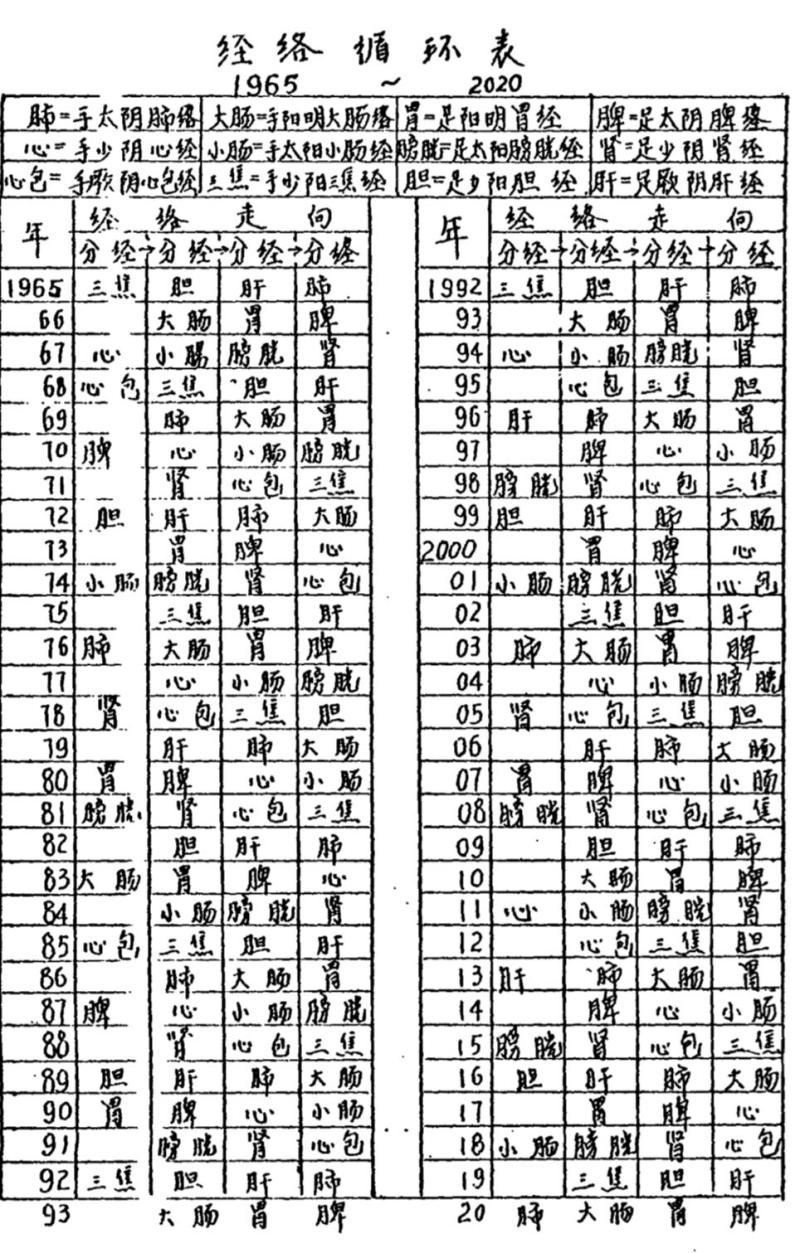 经络循环表
1965 ~ 2020
肺=手太阴肺经 大肠=手阳明大肠经 胃=足阳明胃经 脾=足太阴脾经
心=手少阴心经 小肠=手太阳小肠经 膀胱=足太阳膀胱经 肾=足少阴肾经
心包=手厥阴心包经 三焦=手少阳三焦经 胆=足少阳胆经 肝=足厥阴肝经
年 经络走向
分经→分经→分经→分经
1965 三焦 胆 肝 肺
66 大肠 胃 脾
67 心 小腸 膀胱 肾
68 心包 三焦 胆 肝
69 肺 大肠 胃
70 脾 心 小肠 膀胱
71 肾 心包 三焦
72 胆 肝 肺 大肠
73 胃 脾 心
74 小肠 膀胱 肾 心包
75 三焦 胆 肝
76 肺 大肠 胃 脾
77 心 小肠 膀胱
78 肾 心包 三焦 胆
79 肝 肺 大肠
80 胃 脾 心 小肠
81 膀胱 肾 心包 三焦
82 胆 肝 肺
83 大肠 胃 脾 心
84 小肠 膀胱 肾
85 心包 三焦 胆 肝
86 肺 大肠 胃
87 脾 心 小肠 膀胱
88 肾 心包 三焦
89 胆 肝 肺 大肠
90 胃 脾 心 小肠
91 膀胱 肾 心包
92 三焦 胆 肝 肺
93 大肠 胃 脾
年 经络走向
分经→分经→分经→分经
1992 三焦 胆 肝 肺
93 大肠 胃 脾
94 心 小肠 膀胱 肾
95 心包 三焦 胆
96 肝 肺 大肠 胃
97 脾 心 小肠
98 膀胱 肾 心包 三焦
99 胆 肝 肺 大肠
2000 胃 脾 心
01 小肠 膀胱 肾 心包
02 三焦 胆 肝
03 肺 大肠 胃 脾
04 心 小肠 膀胱
05 肾 心包 三焦 胆
06 肝 肺 大肠
07 胃 脾 心 小肠
08 膀胱 肾 心包 三焦
09 胆 肝 肺
10 大肠 胃 脾
11 心 小肠 膀胱 肾
12 心包 三焦 胆
13 肝 肺 大肠 胃
14 脾 心 小肠
15 膀胱 肾 心包 三焦
16 胆 肝 肺 大肠
17 胃 脾 心
18 小肠 膀胱 肾 心包
19 三焦 胆 肝
20 肺 大肠 胃 脾